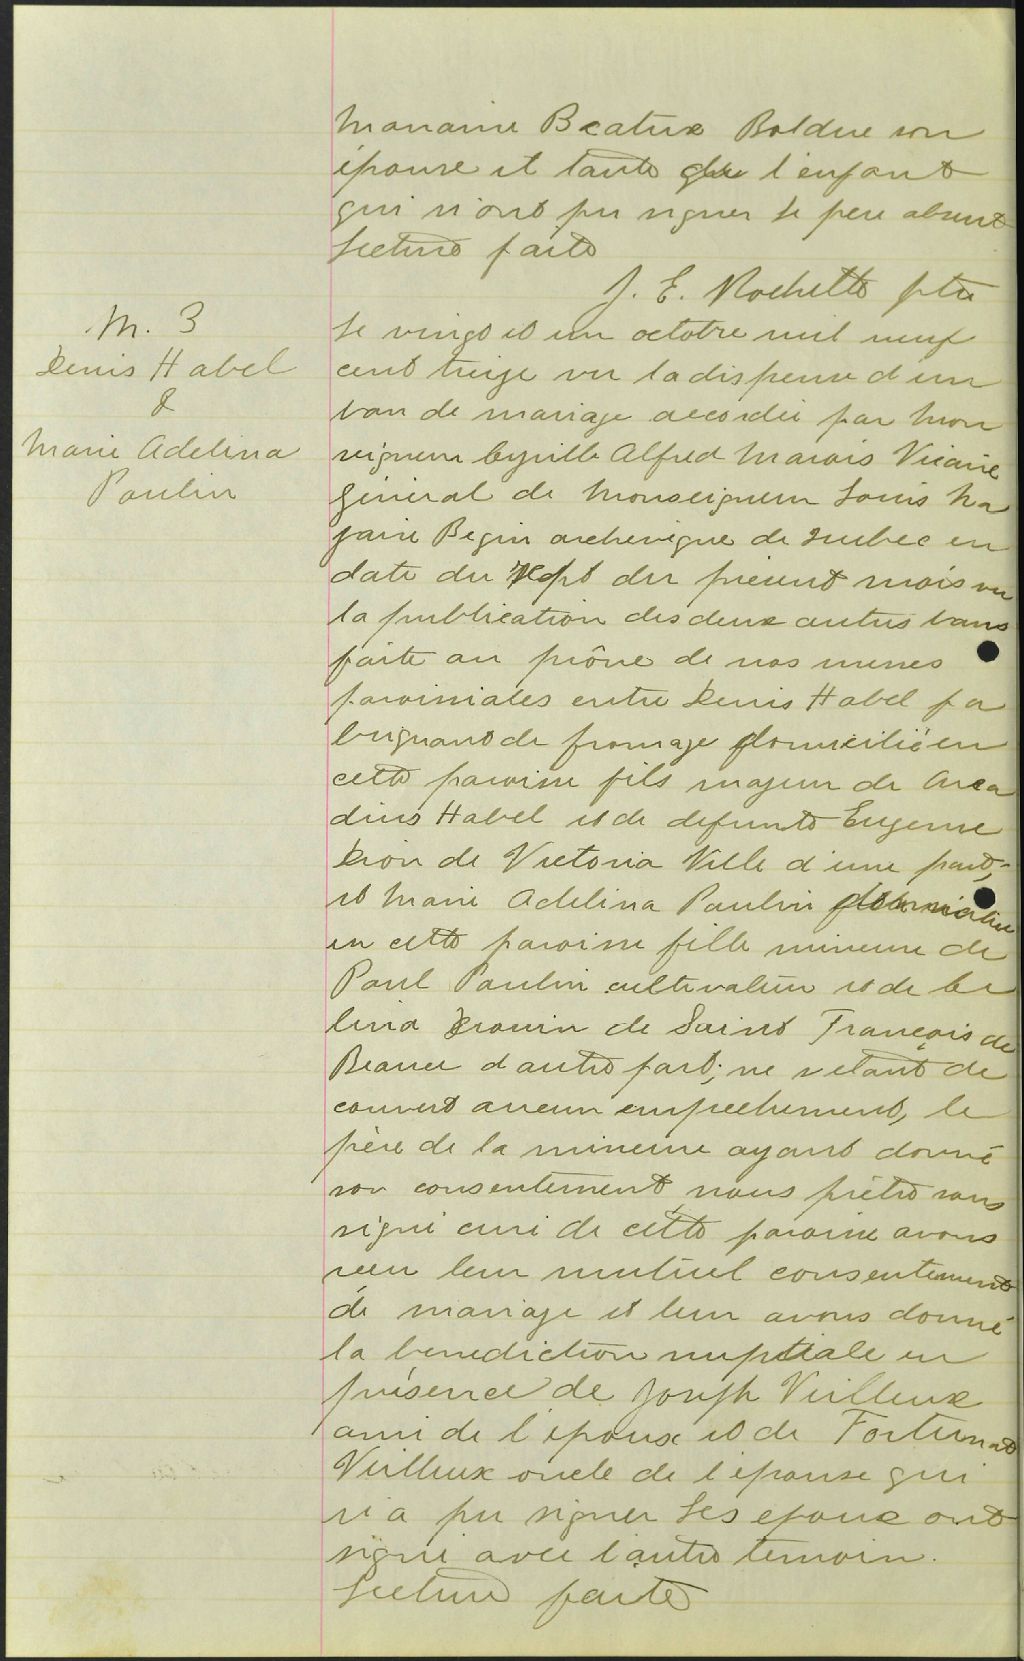 marraine Beatrix Bolduc son
épouse et tante de l'enfant
qui n'ont pu signer le pere absent
Lecture faite
J. E. Rochette ptre
M. 3
Denis Habel
&
Marie Adelina
Poulin
Le vingt et un octobre mil neuf
cent treize vu la dispense d'un
ban de mariage accordée par Mon
seigneur Cyrille Alfred Marois Vicaire
Général de Monseigneur Louis Na
zaire Begin archevêque de Quebec en
date du sept du présent mois vu
la publication des deux autres bans
faite au prône de nos messes
paroissiales entre Denis Habel fa
briquant de fromage domicilié en
cette paroisse fils majeur de Arca
dius Habel et de defunte Eugenie
Dion de Victoria Ville d'une part;
et Marie Adelina Poulin domiciliée
en cette paroisse fille mineure de
Paul Poulin cultivateur et de Ce
lina Drouin de Saint François de
Beauce d'autre part; ne s'étant dé
couvert aucun empêchement, le
père de la mineure ayant donné
son consentement nous prêtre sous
signé curé de cette paroisse avons
reçu leur mutuel consentement
de mariage et leur avons donné
la benediction nuptiale en
présence de Joseph Veilleux
ami de l'époux et de Fortunat
Veilleux oncle de l'épouse qui
n'a pu signer Les epoux ont
signé avec l'autre temoin.
Lecture faite